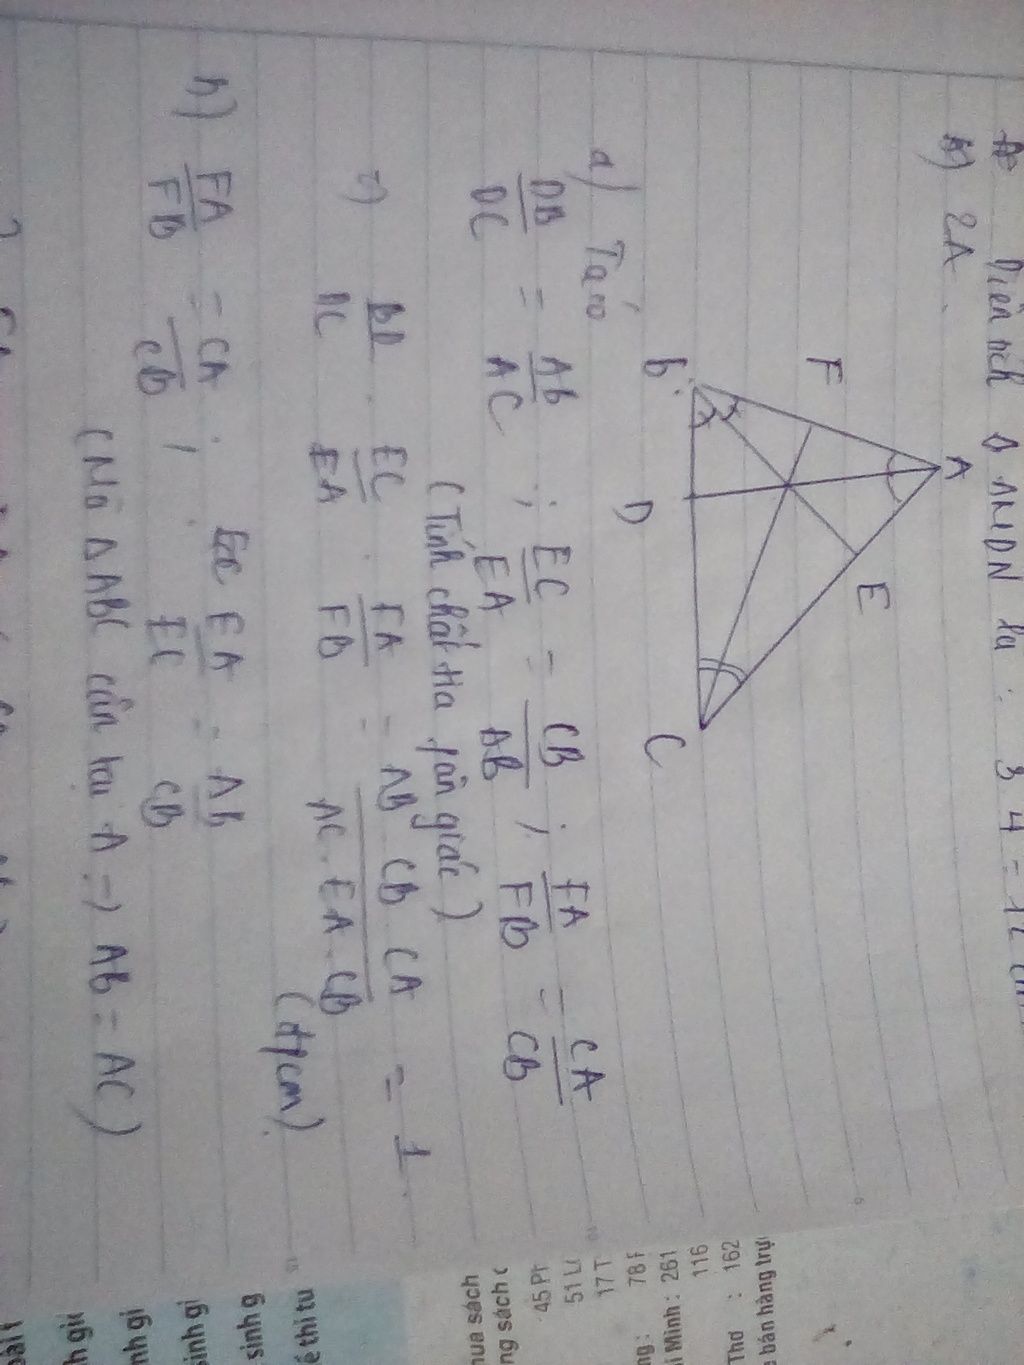 Diện tích Δ AMDN là : 3 4 = 12
2A.
A
F
E
B
D
C
a) Ta có
DB/DC = AB/AC ; EC/EA = CB/AB ; FA/FB = CA/CB
(Tính chất tia phân giác)
=) BD/DC . EC/EA . FA/FB = AB CB CA / AC . EA . CB = 1
(đpcm)
h) FA/FB = CA/CB ; EA/EC = AB/CB
(Mà Δ ABC cân tại A => AB = AC)
mua sách
ng sách
45 P
51 L
17 T
ng : 78
i Minh : 261
116
Thơ : 162
bán hàng trự
ế thi tu
sinh g
sinh gi
nh gi
h gi
bài t